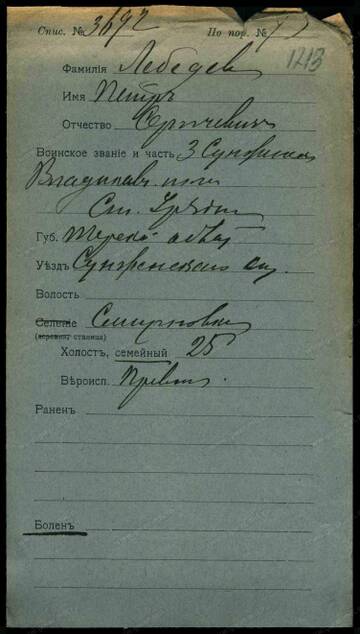 Спис. № 3692 По пор. №
1213
Фамилія Лебедев
Имя Петръ
Отчество
Воинское званіе и часть 3 Сунженск
Владикавк полк
Ст. Уряд
Губ. Терской обл
Уѣздъ Сунженскаго
Волость
Селеніе
(деревня, станица)
Холостъ, семейный 25
Вѣроисп. Правосл.
Раненъ
Боленъ